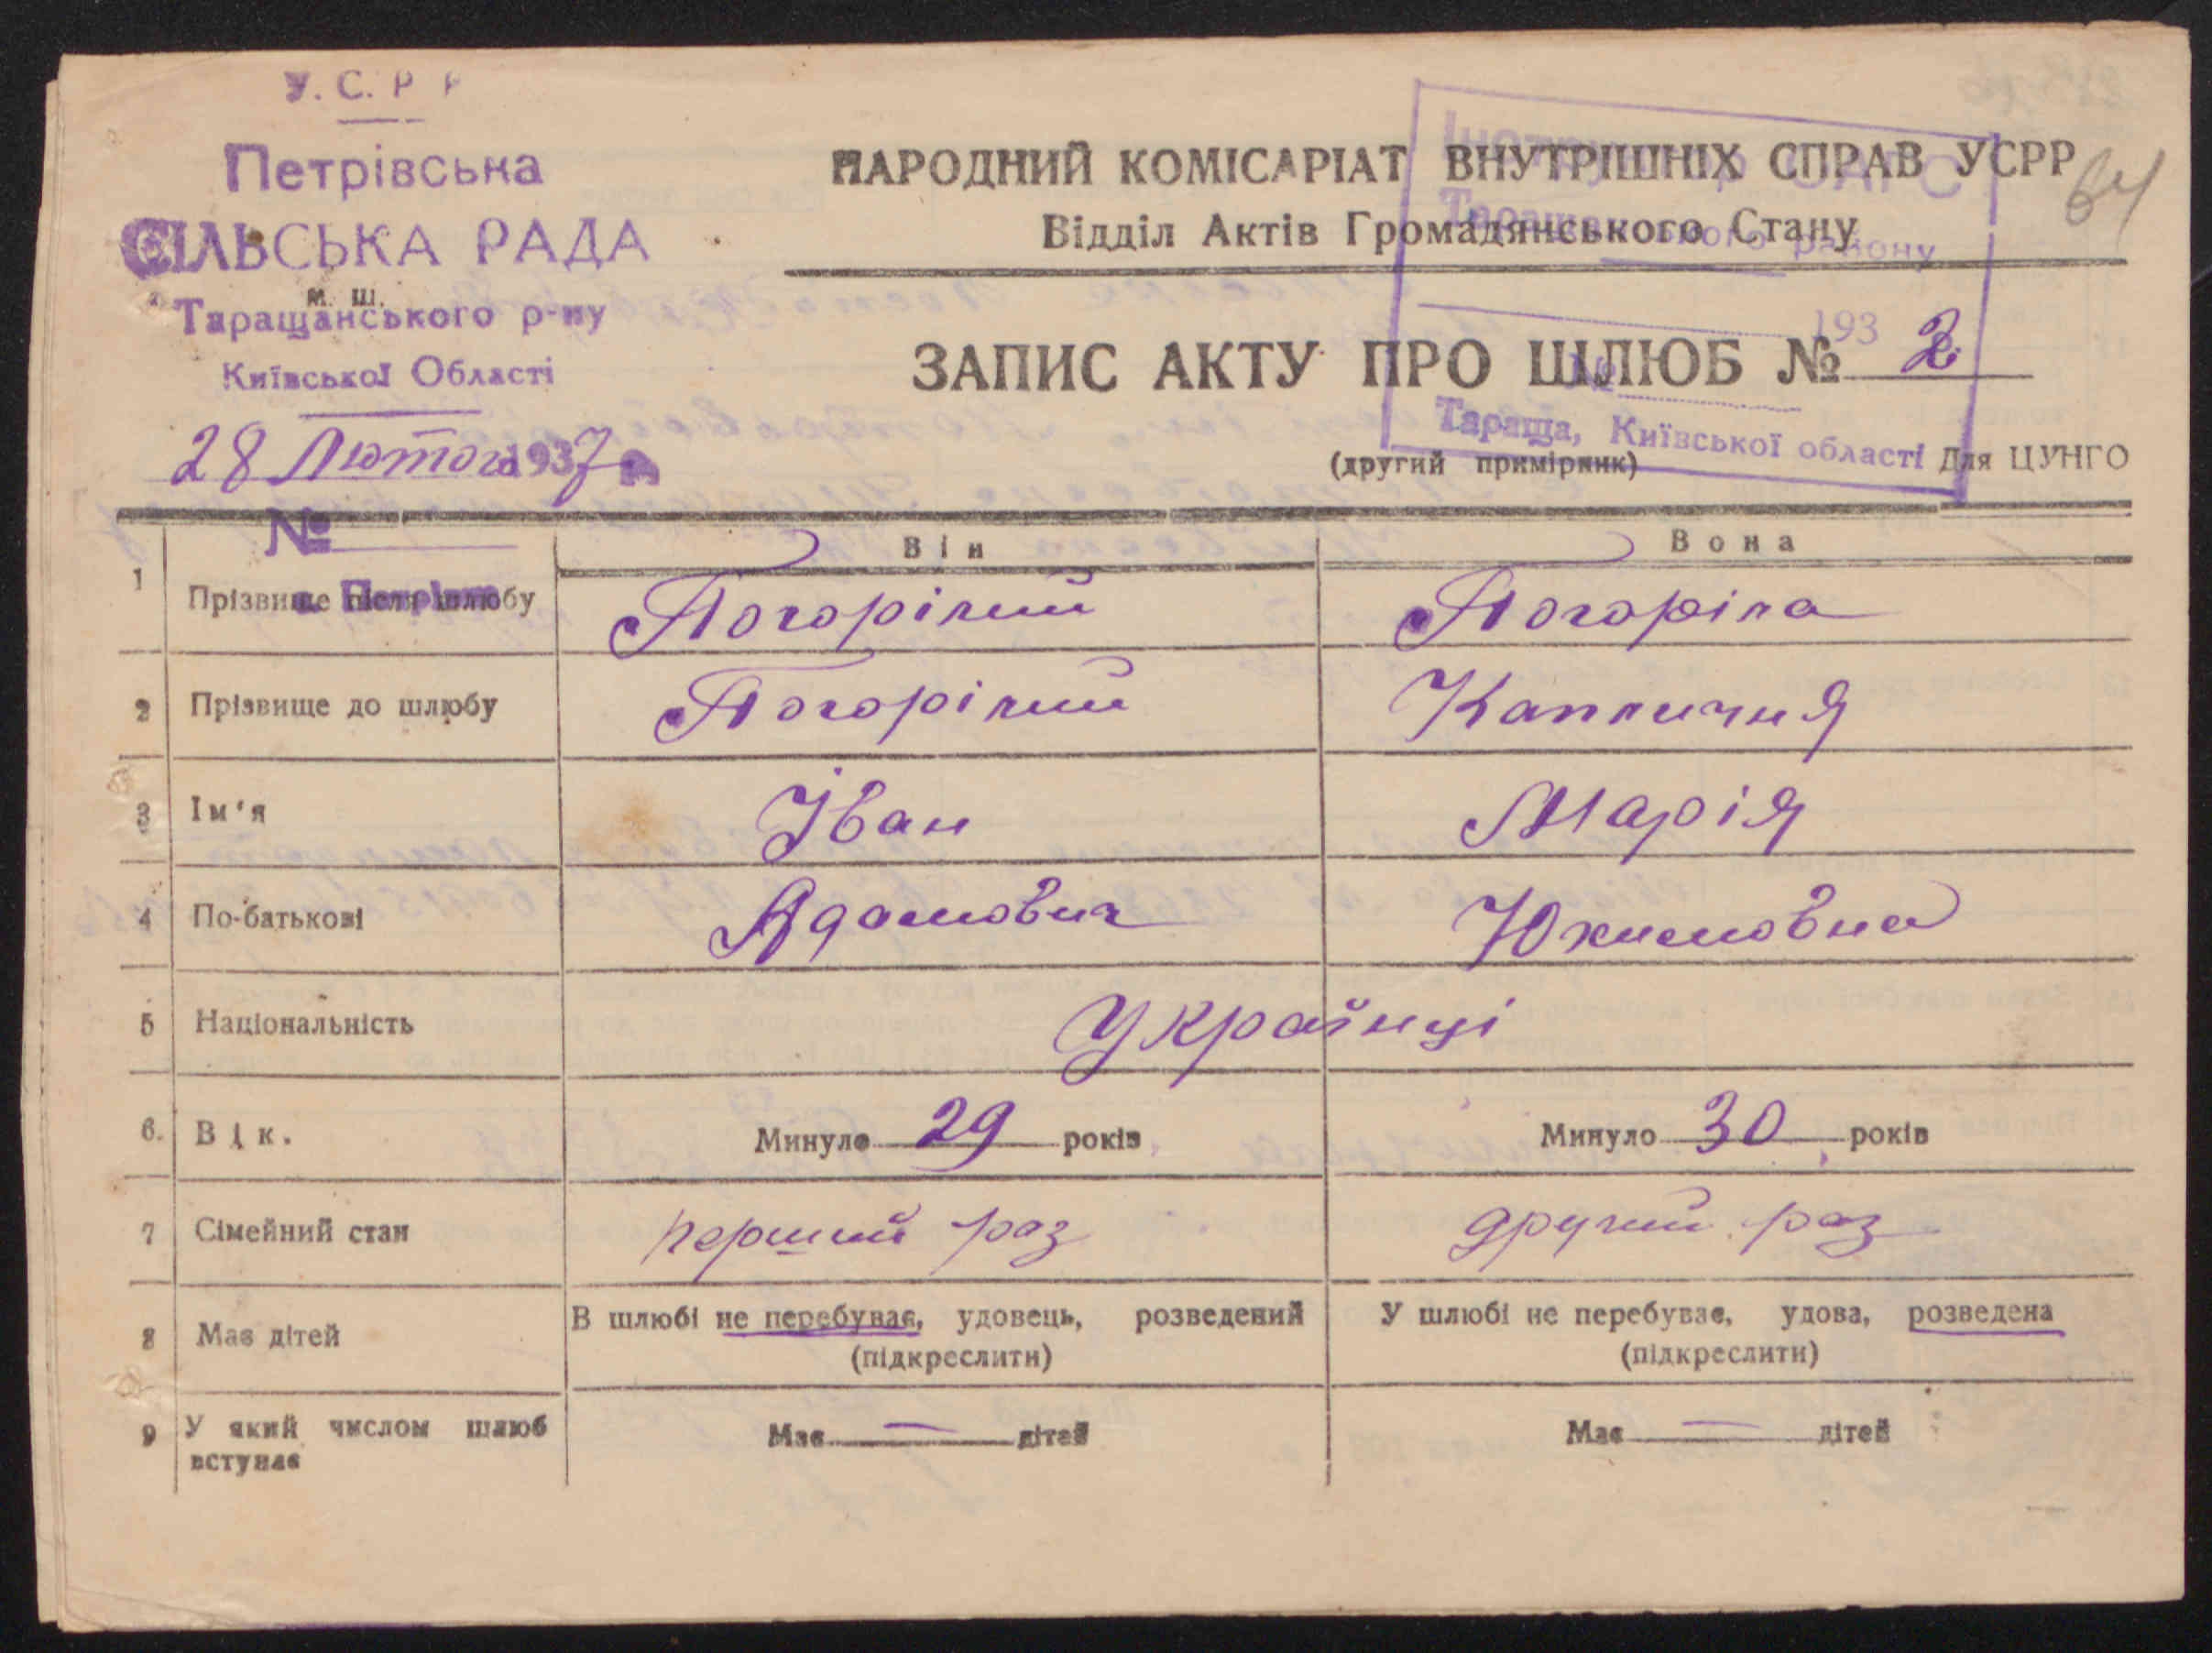 У.С.Р.Р
Петрівська
СІЛЬСЬКА РАДА
м. ш.
Таращанського р-ну
Київської Області
28 Лютого 1937 р
№
с. Петрівка
НАРОДНИЙ КОМІСАРІАТ ВНУТРІШНІХ СПРАВ УСРР
64
Відділ Актів Громадянського Стану
ЗАГС
Таращанського району
193
№
Тараща, Київської області
ЗАПИС АКТУ ПРО ШЛЮБ № 2
(другий примірник) Для ЦУНГО
Він Вона
1 Прізвище після шлюбу Погорілий Погоріла
2 Прізвище до шлюбу Погорілий Капличня
3 Ім'я Іван Марія
4 По-батькові Адамович Юхимовна
5 Національність Українці
6. Вік. Минуло 29 років Минуло 30 років
7 Сімейний стан перший раз другий раз
8 Має дітей В шлюбі не перебуває, удовець, розведений У шлюбі не перебуває, удова, розведена
(підкреслити) (підкреслити)
9 У який числом шлюб Має — дітей Має — дітей
вступає